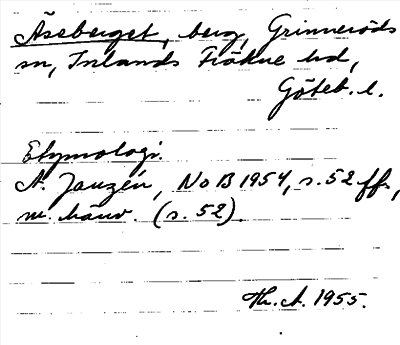 Åseberget, berg, Grinneröds
sn, Inlands Fräkne hd,
Göteb. l.
Etymologi.
A. Janzén, NoB 1954, s. 52 ff.,
m. hänv. (s. 52).
Th. A. 1955.